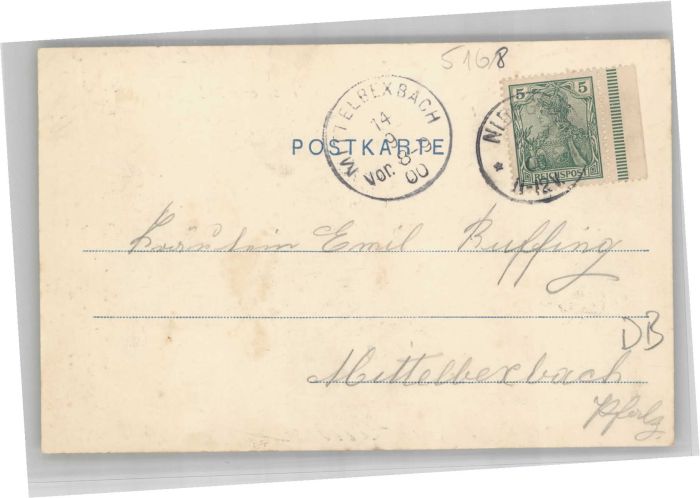 5168
MITTELBEXBACH
14
9
Vor. 8-9
00
POSTKARTE
5 5
REICHSPOST
11-12V.
Fräulein Emil Ruffing
DB
Mittelbexbach
Pfalz